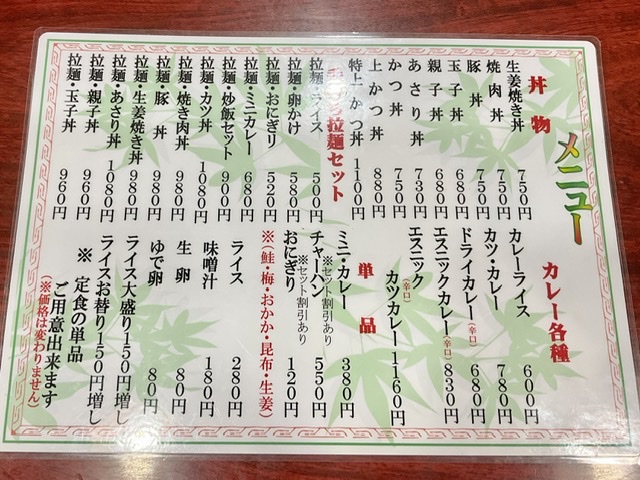 メニュー
丼物
生姜焼き丼 750円
焼肉丼 750円
豚丼 750円
玉子丼 680円
親子丼 680円
あさり丼 730円
かつ丼 750円
上かつ丼 880円
特上かつ丼 1100円
拉麺セット
拉麺・ライス 500円
拉麺・卵かけ 580円
拉麺・おにぎり 520円
拉麺・ミニカレー 680円
拉麺・炒飯セット 900円
拉麺・カツ丼 1080円
拉麺・焼き肉丼 980円
拉麺・豚丼 980円
拉麺・生姜焼き丼 980円
拉麺・あさり丼 980円
拉麺・親子丼 960円
拉麺・玉子丼 960円
カレー各種
カレーライス 600円
カツ・カレー 780円
ドライカレー(辛口) 680円
エスニックカレー(辛口) 830円
エスニック(辛口)
カツカレー 1160円
単品
ミニ・カレー 380円
※セット割引あり
チャーハン 550円
※セット割引あり
おにぎり 120円
※(鮭・梅・おかか・昆布・生姜)
ライス 280円
味噌汁 180円
生卵 80円
ゆで卵 80円
ライス大盛り150円増し
ライスお替り150円増し
※ 定食の単品
ご用意出来ます
(※価格は変わりません)